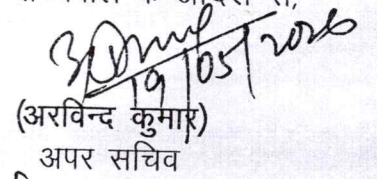 के आदेश से,
19/05/2026
(अरविन्द कुमार)
अपर सचिव